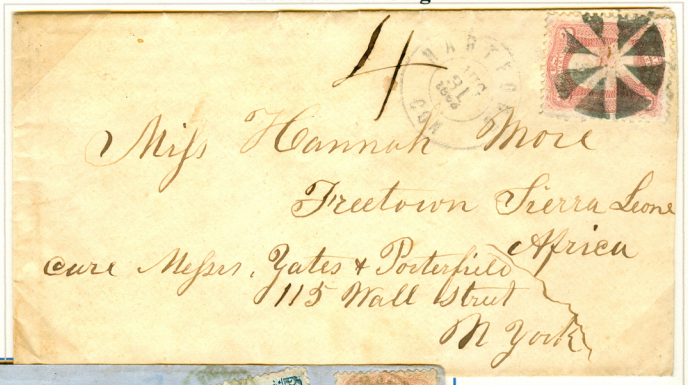 4
HARTFORD CON
AUG
31
Miss Hannah More
Freetown Sierra Leone
Africa
Care Messrs. Yates & Porterfield
115 Wall Street
N York